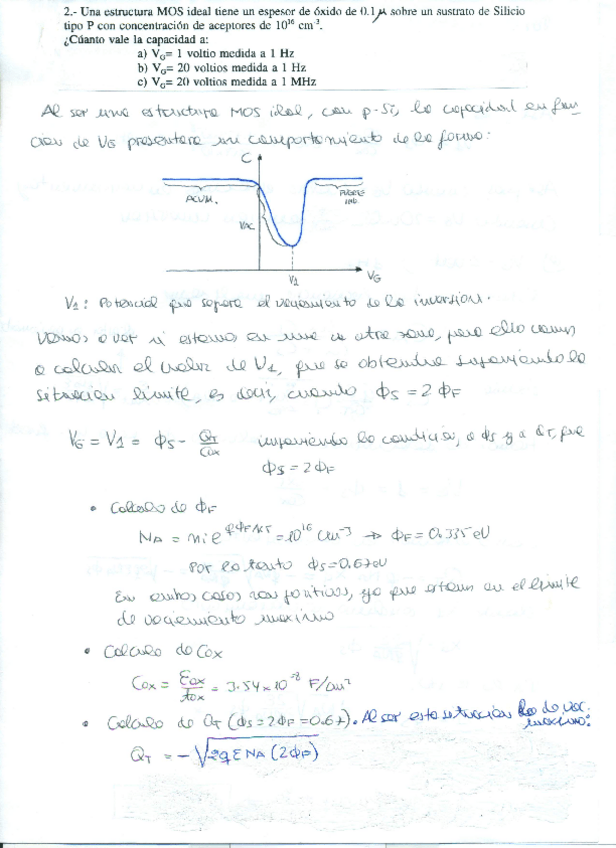 2.- Una estructura MOS ideal tiene un espesor de óxido de 0.1 μ sobre un sustrato de Silicio
tipo P con concentración de aceptores de 10¹⁶ cm⁻³.
¿Cúanto vale la capacidad a:
a) V_G= 1 voltio medida a 1 Hz
b) V_G= 20 voltios medida a 1 Hz
c) V_G= 20 voltios medida a 1 MHz
Al ser una estructura MOS ideal, con p-Si, la capacidad en fun-
ción de VG presentara un comportamiento de la forma:
C
ACUM.
FUERTE
IND.
VAC
V1
VG
V1: Potencial que separa el vaciamiento de la inversión.
Vamos a ver si estamos en una u otra zona, para ello vamos
a calcular el valor de V1, que se obtendra suponiendo la
situación límite, es decir, cuando ϕS = 2 ϕF
VG = V1 = ϕS - QT/Cox imponiendo la condición, a ϕS y a QT, que
ϕS = 2 ϕF
• Calculo de ϕF
NA = ni e^(qϕF/KT) = 10¹⁶ cm⁻³ → ϕF = 0.335 eV
Por lo tanto ϕS = 0.67 eV
En ambos casos son positivos, ya que estamos en el límite
de vaciamiento maximo
• Calculo de Cox
Cox = Eox/tox = 3.54 x 10⁻⁸ F/cm²
• Calculo de QT (ϕS = 2ϕF = 0.67). Al ser esta situacion de vac.
maximo:
QT = - √(2qENA (2ϕF))